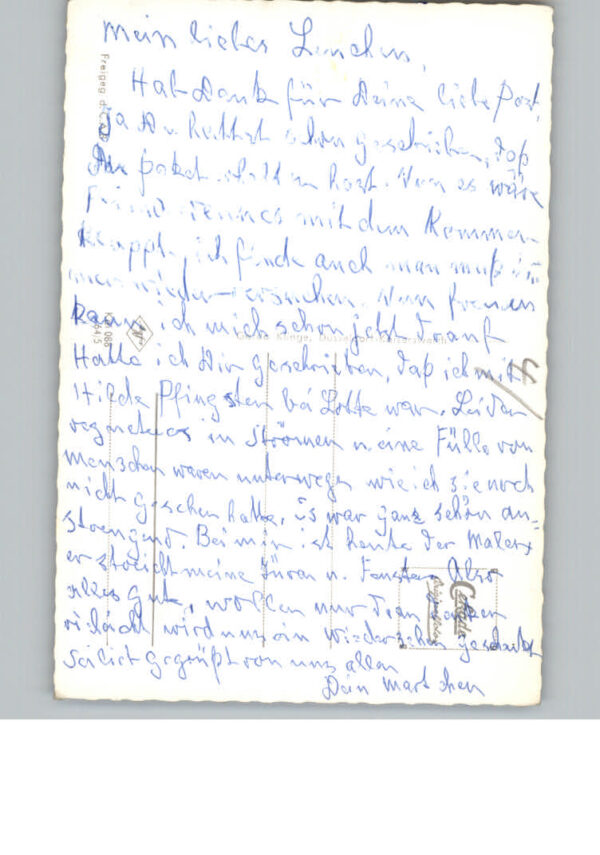 mein liebes Lenchen,
Hab Dank für Deine liebe Post,
ja Du hattest schon geschrieben, daß
Du paket erhalten hast. Nun es wäre
mit dem Kommen
klappt, ich finde auch man muß im
mer wieder versuchen. Nun freuen
kann ich mich schon jetzt drauf
Hatte ich Dir geschrieben, daß ich mit
Hilde Pfingsten bei Lotte war. Leider
regnete es in Strömen u. eine Fülle von
menschen waren unterwegs wie ich sie noch
nicht gesehen hatte, es war ganz schön an=
strengend. Bei mir ist heute der Maler
er streicht meine Türen u. Fenster. Also
alles Gute, wollen nur dran denken
vileicht wird uns ein wiedersehen geschenkt
sei lieb gegrüßt von uns allen
Dein martchen
Freigeg. d.
Krüger
4/